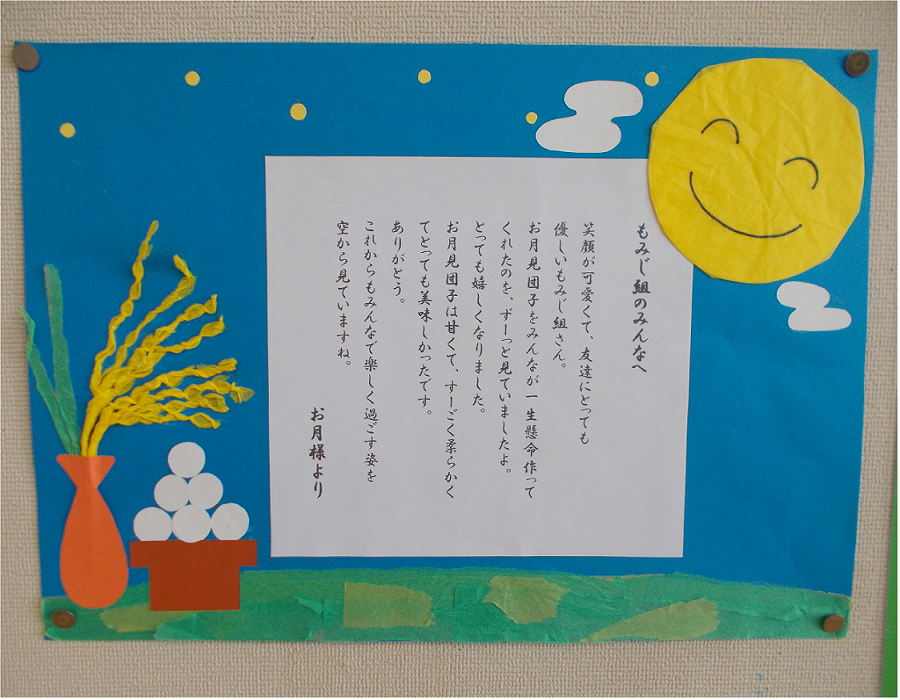 もみじ組のみんなへ
笑顔が可愛くて、友達にとっても
優しいもみじ組さん。
お月見団子をみんなが一生懸命作って
くれたのを、ずーっと見ていましたよ。
とっても嬉しくなりました。
お月見団子は甘くて、すーごく柔らかく
てとっても美味しかったです。
ありがとう。
これからもみんなで楽しく過ごす姿を
空から見ていますね。
お月様より